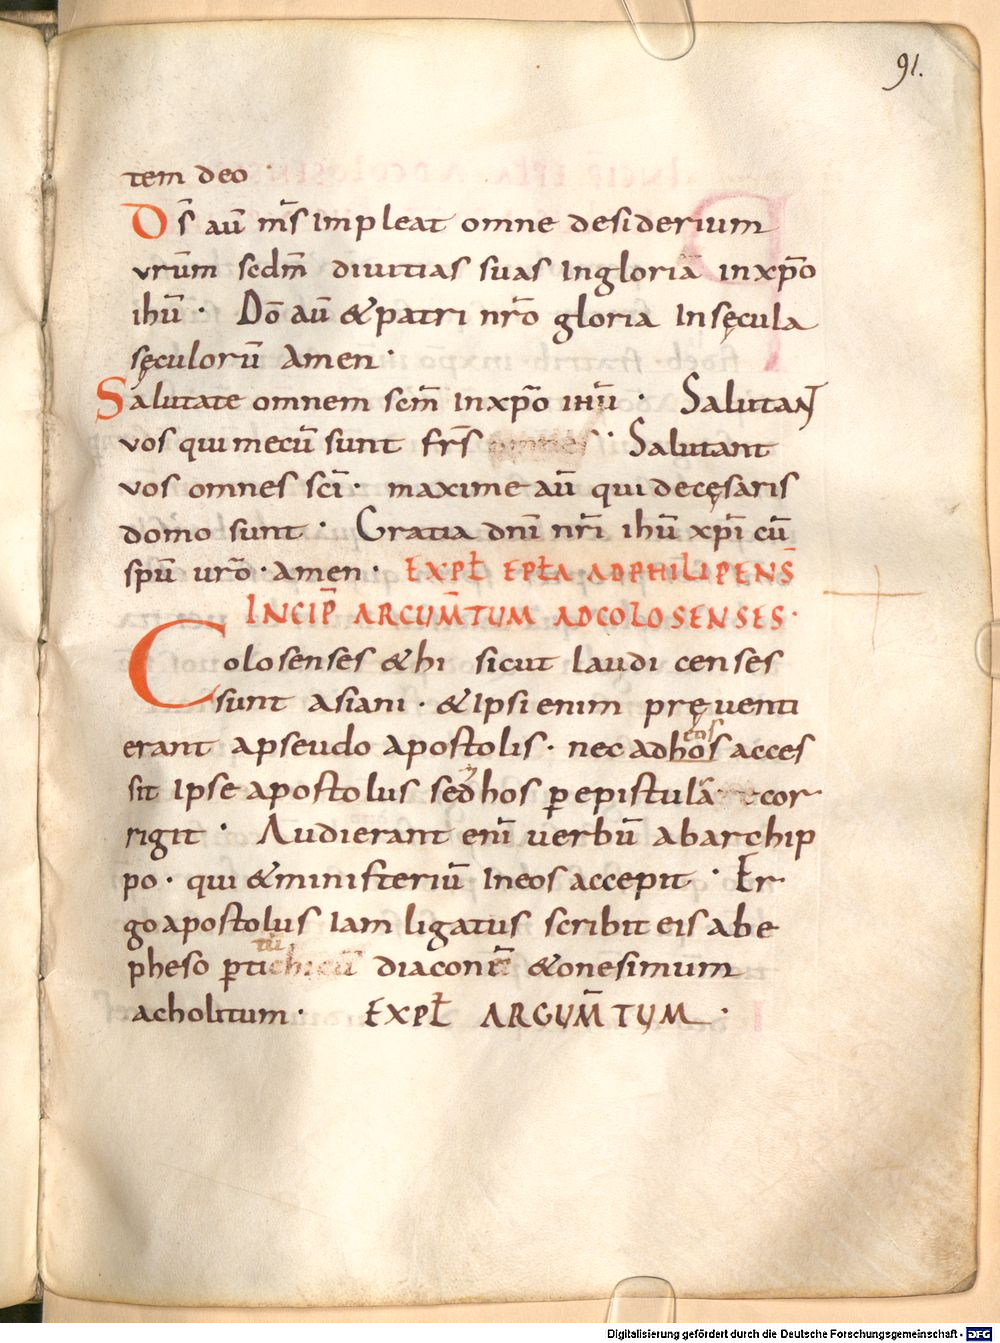 91.
tem deo
Ds̄ aū m̄s impleat omne desiderium
vrūm scdm̄ diuitias suas inglorīa inxp̄o
ihū · Dō aū &patri nr̄o gloria insęcula
sęculorū Amen ·
Salutate omnem scm̄ inxp̄o ihū · Salutant
vos qui mecū sunt fr̄s · Salutant
vos omnes scī · maxime aū qui decęsaris
domo sunt · Gratia dnī nr̄i ihū xp̄i cū
spū ur̄o · Amen · EXPŁ EPŁA ADPHILIPENS̄
INCIP̄ ARGUM̄TUM ADCOLOSENSES ·
Colosenses &hi sicut laudi censes
sunt asiani · &ipsi enim pręuenti
eos
erant apseudo apostolis · nec adhos acces
sit ipse apostolus sed hos ꝑepistulā cor
rigit · Audierant enī uerbū abarchip
po · qui &ministeriū ineos accepit · Er
go apostolus iam ligatus scribit eis abe
tū
pheso ꝑtichicū diaconū &onesimum
acholitum · EXPŁ ARGUM̄TUM ·
Digitalisierung gefördert durch die Deutsche Forschungsgemeinschaft - DFG